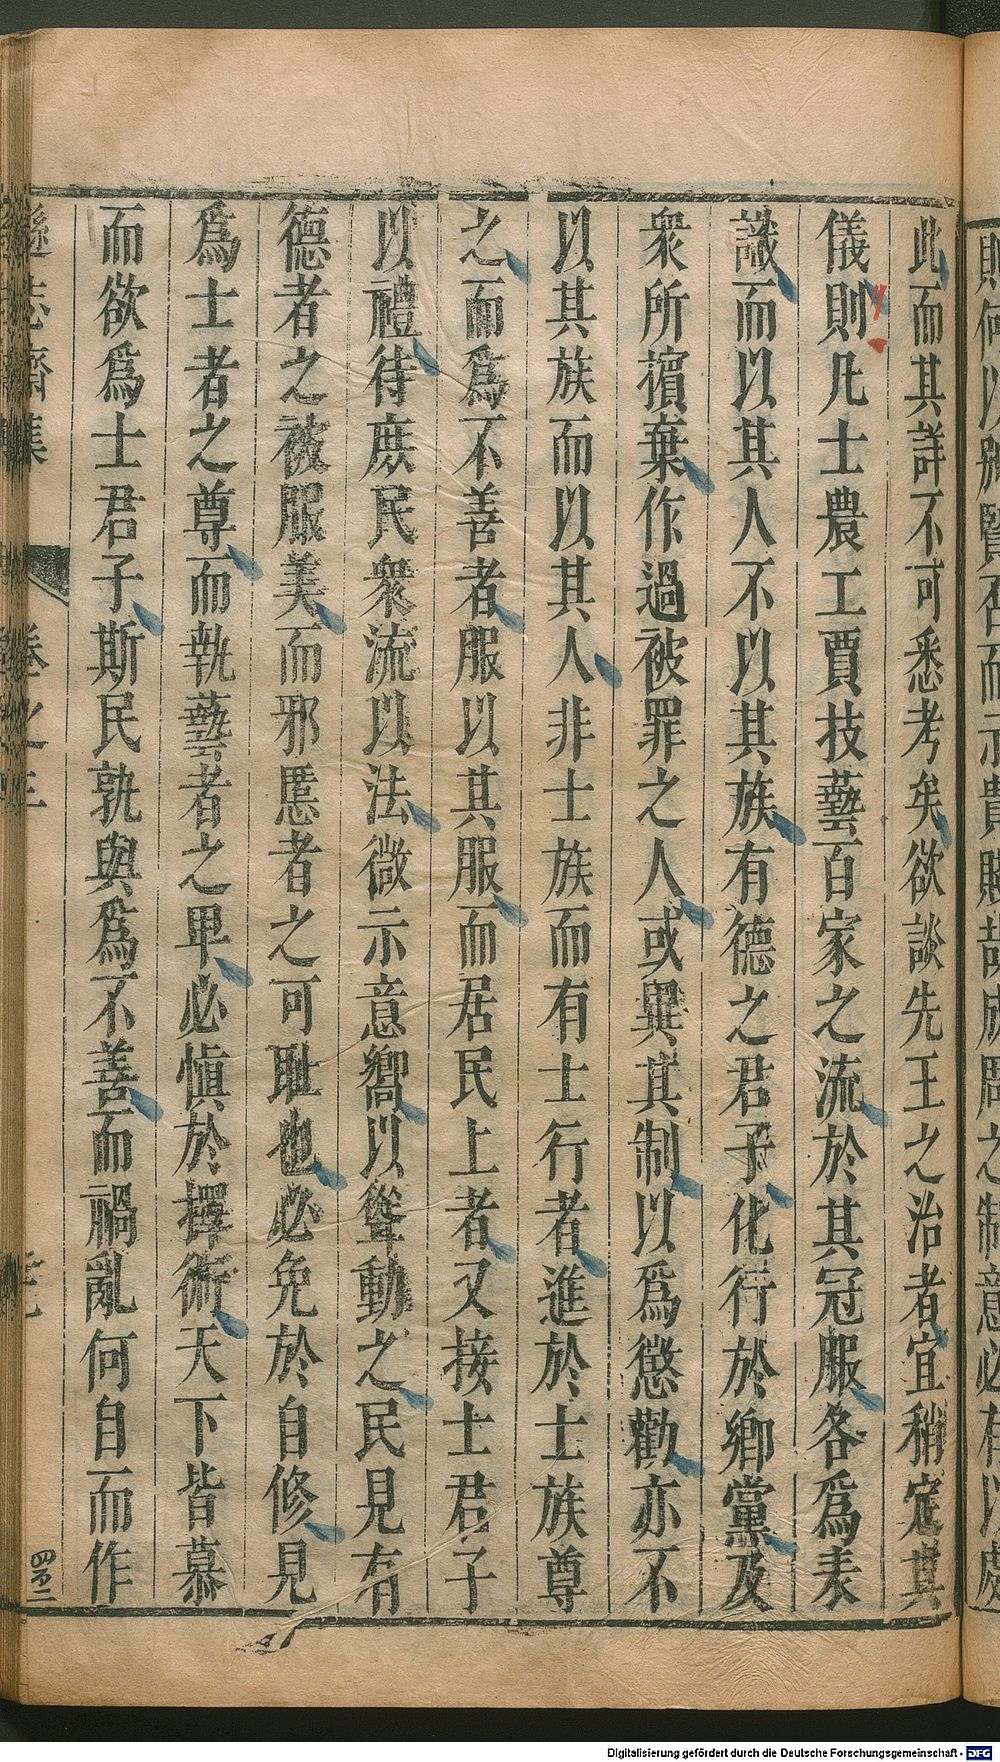 賤何以別賢否而示貴賤哉成周之制意必有以處
此而其詳不可悉考矣欲談先王之治者宜稍定其
儀則凡士農工賈技藝百家之流於其冠服各爲表
識而以其人不以其族有德之君子化行於鄉黨及
衆所擯棄作過被罪之人或異其制以爲懲勸亦不
以其族而以其人非士族而有士行者進於士族尊
之而爲不善者服以其服而居民上者又接士君子
以禮待庶民衆流以法微示意嚮以聳動之民見有
德者之被服美而邪慝者之可耻也必免於自修見
爲士者之尊而執藝者之卑必愼於擇術天下皆慕
而欲爲士君子斯民孰與爲不善而禍亂何自而作
遜志齋集
卷之三
四不二
Digitalisierung gefördert durch die Deutsche Forschungsgemeinschaft - DFG